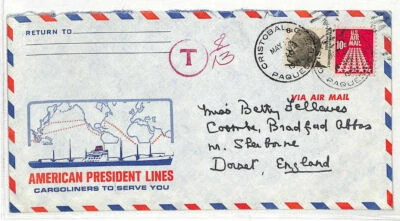 RETURN TO
T
8
13
CRISTOBAL
MAY
PAQUEBOT
U.S. AIR MAIL
10c
VIA AIR MAIL
Miss Betty Fellowes
Coombe, Bradford Abbas
nr. Sherborne
Dorset, England
AMERICAN PRESIDENT LINES
CARGOLINERS TO SERVE YOU